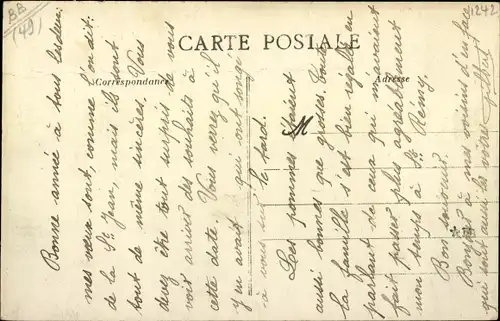 BB
(49)
1242
CARTE POSTALE
Correspondance
Adresse
M
Bonne année à tous les deux
mes vœux sont, comme l'on dit
de la St Jean, mais ils sont
tout de même sincères. Vous
devez être tout surpris de vous
voir arriver des souhaits à
cette date. Vous verrez qu'il
y en avait qui ont songé
à vous sur le tard.
Les pommes étaient
aussi bonnes que grosses. Toute
la famille s'est bien régalée en
parlant de ceux qui m'avaient
fait passer plus agréablement
mon temps à St Rémy.
Bon souvenir.
Bonjour à mes voisins d'en face
qui sont aussi les vôtres